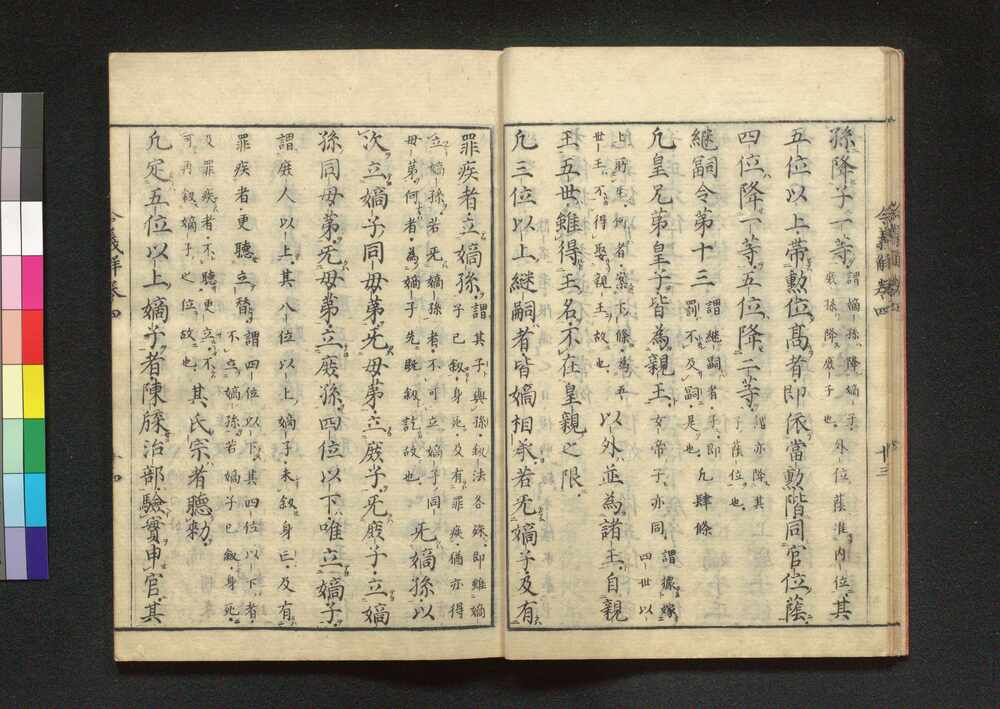 孫降子一等謂嫡孫降嫡子
庶孫降庶子也外位蔭准内位其
五位以上帯勲位髙者即依當勲階同官位蔭
四位降一等五位降二等亦降其
子蔭位也
継嗣令第十三謂継嗣者子即
罰不及嗣是也凢肆條
凢皇兄弟皇子皆為親王女帝子亦同謂據嫁
四世以
上所生何者案下條為五
世王不得娶親王故也以外並為諸王自親
王五世雖得王名不在皇親之限
凢三位以上継嗣者皆嫡相承若无嫡子及有
令義解巻四
廿三
罪疾者立嫡孫謂其子與孫叙法各殊即雖嫡
子已叙身死及有罪疾猶亦得
立嫡孫若无嫡孫者不可立嫡子同
母弟何者為嫡子先既叙訖故也无嫡孫以
次立嫡子同母弟无母弟立庶子无庶子立嫡
孫同母弟无母弟立庶孫四位以下唯立嫡子
謂庶人以上其八位以上嫡子未叙身亡及有
罪疾者更聽立替謂四位以下其四位以下者
不立嫡孫若嫡子已叙身死
及罪疾者不聽更立不
可再叙嫡子之位故也其氏宗者聽勅
凢定五位以上嫡子者陳牒治部驗實申官其